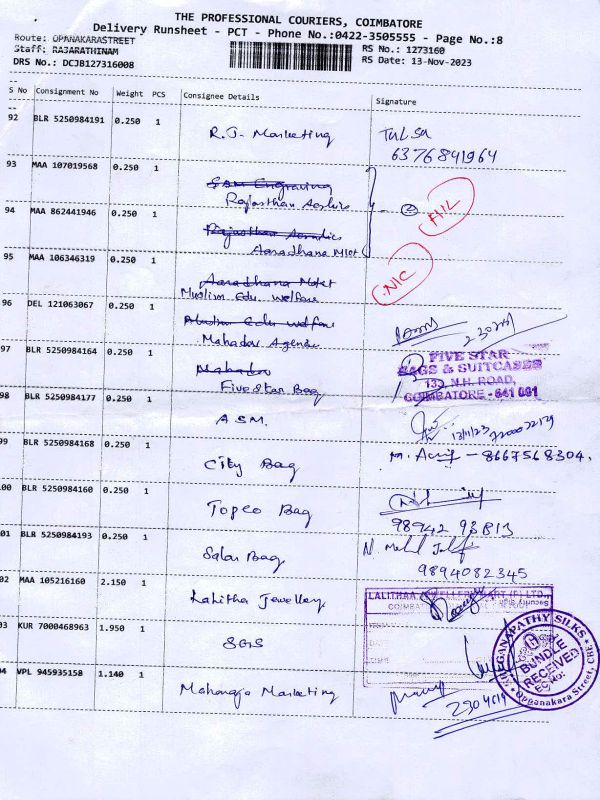 THE PROFESSIONAL COURIERS, COIMBATORE
Delivery Runsheet - PCT - Phone No.:0422-3505555 - Page No.:8
Route: OPANAKARASTREET RS No.: 1273160
Staff: RAJARATHINAM RS Date: 13-Nov-2023
DRS No.: DCJB127316008
S No Consignment No Weight PCS Consignee Details Signature
92 BLR 5250984191 0.250 1 R.J. Marketing Tulsa
6376841964
93 MAA 107019568 0.250 1 SAM Engraving
Rajasthan
94 MAA 862441946 0.250 1 Rajasthan
Aaradhana
HIL
95 MAA 106346319 0.250 1 Aaradhana
Muslim Edu. Welfare
NIC
96 DEL 121063067 0.250 1 Edu welfare
Mahadev
97 BLR 5250984164 0.250 1 Mahadev
Five Star Bag
FIVE STAR
BAGS & SUITCASES
N.H. ROAD,
COIMBATORE - 641 001
98 BLR 5250984177 0.250 1 A S M. 13/11/23
99 BLR 5250984168 0.250 1 City Bag 8667568304.
00 BLR 5250984160 0.250 1 Topco Bag
98942 93813
01 BLR 5250984193 0.250 1 Salai Bag N. Mohd
9894082345
02 MAA 105216160 2.150 1 Lalitha Jewellery
LALITHAA JEWELLERY MART (P) LTD.,
03 KUR 7000468963 1.950 1 SGS
SRI GANAPATHY SILKS
BUNDLE
RECEIVED
Oppanakara Street, CBE
04 VPL 945935158 1.140 1 Maharaja Marketing